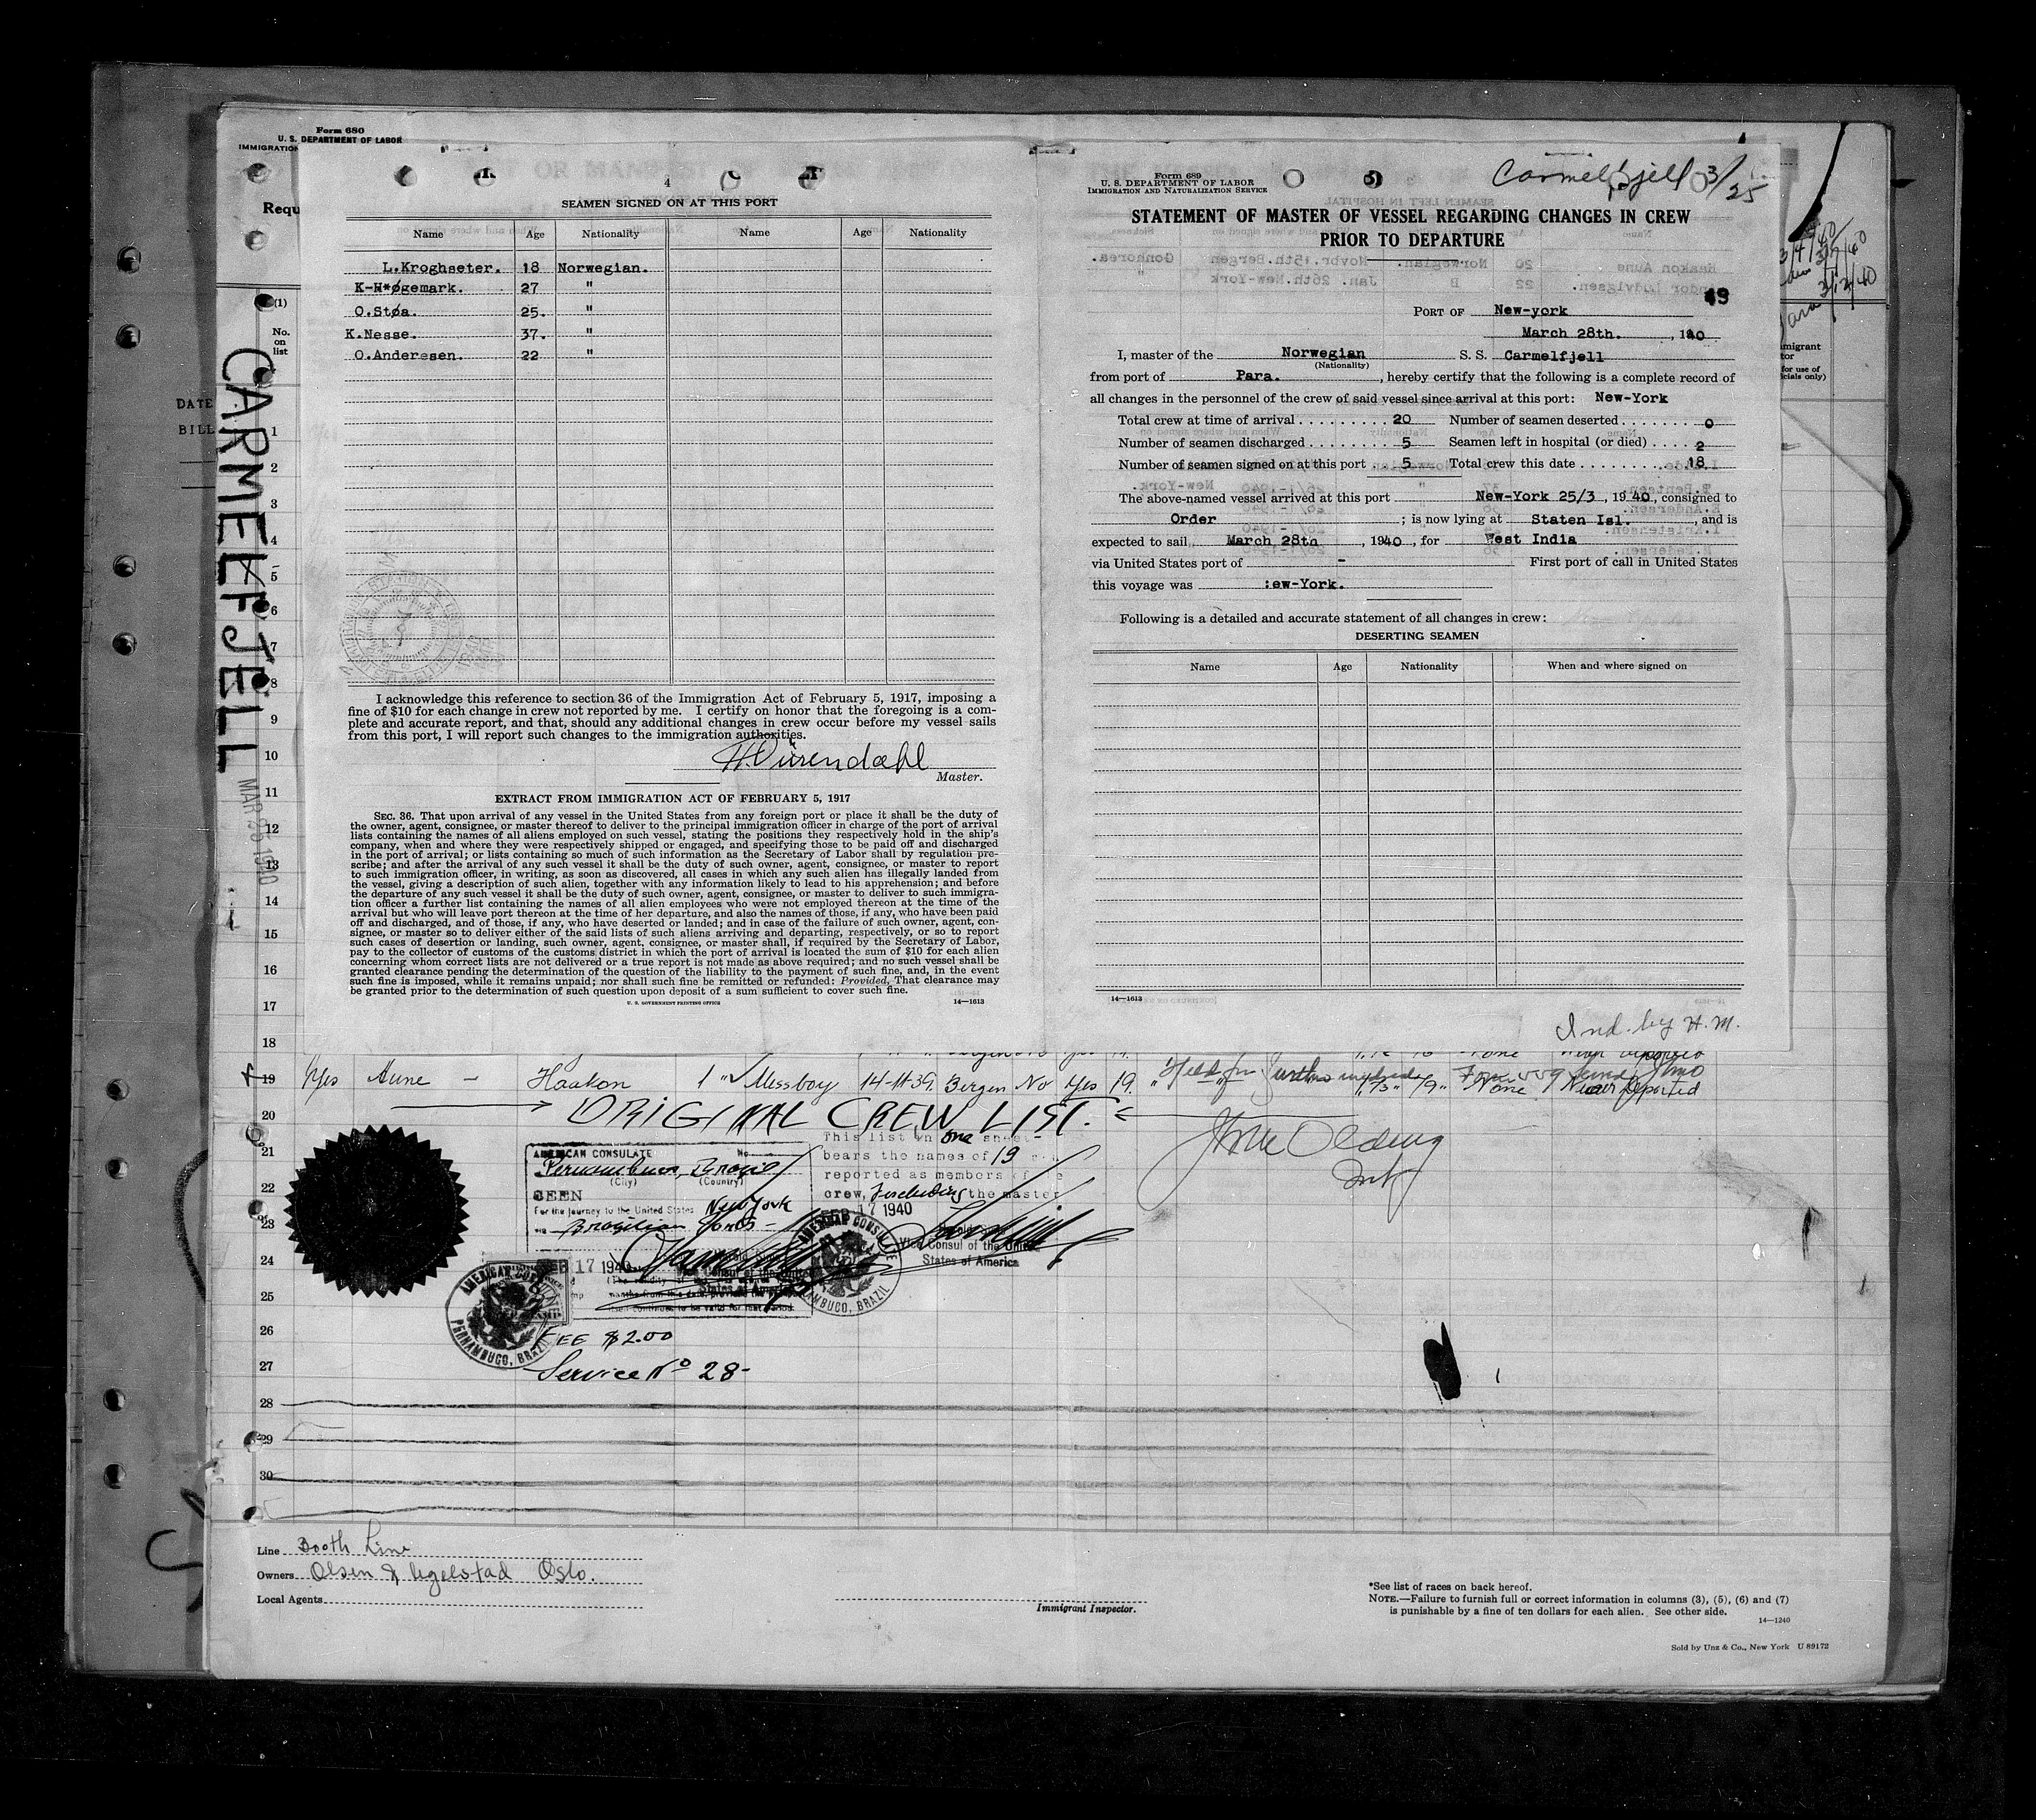 Form 680
U. S. DEPARTMENT OF LABOR
IMMIGRATION
Requ
(1)
No. on list
DATE
BILL
CARMELFJELL
MAR 25 1940
4
SEAMEN SIGNED ON AT THIS PORT
Name Age Nationality Name Age Nationality
L.Kroghseter. 18 Norwegian.
K-H*øgemark. 27 "
O.Støa. 25. "
K.Nesse. 37. "
O.Andersen. 22 "
I acknowledge this reference to section 36 of the Immigration Act of February 5, 1917, imposing a
fine of $10 for each change in crew not reported by me. I certify on honor that the foregoing is a com-
plete and accurate report, and that, should any additional changes in crew occur before my vessel sails
from this port, I will report such changes to the immigration authorities.
Master.
EXTRACT FROM IMMIGRATION ACT OF FEBRUARY 5, 1917
SEC. 36. That upon arrival of any vessel in the United States from any foreign port or place it shall be the duty of
the owner, agent, consignee, or master thereof to deliver to the principal immigration officer in charge of the port of arrival
lists containing the names of all aliens employed on such vessel, stating the positions they respectively hold in the ship's
company, when and where they were respectively shipped or engaged, and specifying those to be paid off and discharged
in the port of arrival; or lists containing so much of such information as the Secretary of Labor shall by regulation pre-
scribe; and after the arrival of any such vessel it shall be the duty of such owner, agent, consignee, or master to report
to such immigration officer, in writing, as soon as discovered, all cases in which any such alien has illegally landed from
the vessel, giving a description of such alien, together with any information likely to lead to his apprehension; and before
the departure of any such vessel it shall be the duty of such owner, agent, consignee, or master to deliver to such immigra-
tion officer a further list containing the names of all alien employees who were not employed thereon at the time of the
arrival but who will leave port thereon at the time of her departure, and also the names of those, if any, who have been paid
off and discharged, and of those, if any, who have deserted or landed; and in case of the failure of such owner, agent, con-
signee, or master so to deliver either of the said lists of such aliens arriving and departing, respectively, or so to report
such cases of desertion or landing, such owner, agent, consignee, or master shall, if required by the Secretary of Labor,
pay to the collector of customs of the customs district in which the port of arrival is located the sum of $10 for each alien
concerning whom correct lists are not delivered or a true report is not made as above required; and no such vessel shall be
granted clearance pending the determination of the question of the liability to the payment of such fine, and, in the event
such fine is imposed, while it remains unpaid; nor shall such fine be remitted or refunded: Provided, That clearance may
be granted prior to the determination of such question upon deposit of a sum sufficient to cover such fine.
U. S. GOVERNMENT PRINTING OFFICE 14—1613
Form 689
U. S. DEPARTMENT OF LABOR
IMMIGRATION AND NATURALIZATION SERVICE
Carmelfjell 3/25
STATEMENT OF MASTER OF VESSEL REGARDING CHANGES IN CREW
PRIOR TO DEPARTURE
49
PORT OF New-york
March 28th. , 1940
I, master of the Norwegian S. S. Carmelfjell
(Nationality)
from port of Para. , hereby certify that the following is a complete record of
all changes in the personnel of the crew of said vessel since arrival at this port: New-York
Total crew at time of arrival 20 Number of seamen deserted 0
Number of seamen discharged 5 Seamen left in hospital (or died) 2
Number of seamen signed on at this port 5 Total crew this date 18
The above-named vessel arrived at this port New-York 25/3 , 1940, consigned to
Order ; is now lying at Staten Isl. , and is
expected to sail March 28th , 1940 , for West India
via United States port of - First port of call in United States
this voyage was :ew-York.
Following is a detailed and accurate statement of all changes in crew:
DESERTING SEAMEN
Name Age Nationality When and where signed on
14—1613
Ind. by H. M.
1
2
3
4
5
6
7
8
9
10
11
12
13
14
15
16
17
18
19 Yes Aune - Haakon 1 " Messboy 14-11-39. Bergen No Yes 19.
20 ORIGINAL CREW LIST.
21
22
23
24
25
26
27
28
29
30
AMERICAN CONSULATE No.
Pernambuco, Brazil
(City) (Country)
SEEN
For the journey to the United States New York
via Brazilian Ports -
FEB 17 1940
Vice Consul of the United
States of America
This list in one sheet
bears the names of 19
reported as members of the
crew, including the master
FEB 17 1940
Vice Consul of the United
States of America
AMERICAN CONSULATE
PERNAMBUCO, BRAZIL
AMERICAN CONSULATE
PERNAMBUCO, BRAZIL
FEE $2.00
Service No 28-
Line Booth Line
Owners Olsen & Ugelstad Oslo.
Local Agents
Immigrant Inspector.
*See list of races on back hereof.
NOTE.—Failure to furnish full or correct information in columns (3), (5), (6) and (7)
is punishable by a fine of ten dollars for each alien. See other side.
14—1240
Sold by Unz & Co., New York U 89172